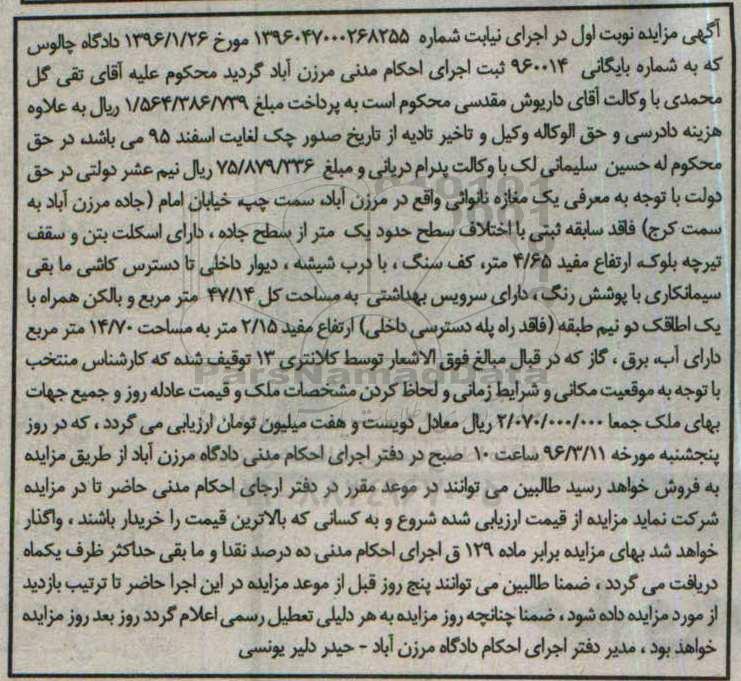 آگهی مزایده نوبت اول در اجرای نیابت شماره ۱۳۹۶۰۴۷۰۰۰۲۶۸۲۵۵ مورخ ۱۳۹۶/۱/۲۶ دادگاه چالوس
که به شماره بایگانی ۹۶۰۰۱۴ ثبت اجرای احکام مدنی مرزن آباد گردید محکوم علیه آقای تقی گل
محمدی با وکالت آقای داریوش مقدسی محکوم است به پرداخت مبلغ ۱/۵۶۴/۳۸۶/۷۳۹ ریال به علاوه
هزینه دادرسی و حق الوکاله وکیل و تاخیر تادیه از تاریخ صدور چک لغایت اسفند ۹۵ می باشد، در حق
محکوم له حسین سلیمانی لک با وکالت پدرام دریانی و مبلغ ۷۵/۸۷۹/۳۳۶ ریال نیم عشر دولتی در حق
دولت با توجه به معرفی یک مغازه نانوائی واقع در مرزن آباد، سمت چپ، خیابان امام (جاده مرزن آباد به
سمت کرج) فاقد سابقه ثبتی با اختلاف سطح حدود یک متر از سطح جاده ، دارای اسکلت بتن و سقف
تیرچه بلوک، ارتفاع مفید ۴/۶۵ متر، کف سنگ ، با درب شیشه ، دیوار داخلی تا دسترس کاشی ما بقی
سیمانکاری با پوشش رنگ ، دارای سرویس بهداشتی به مساحت کل ۴۷/۱۴ متر مربع و بالکن همراه با
یک اطاقک دو نیم طبقه (فاقد راه پله دسترسی داخلی) ارتفاع مفید ۲/۱۵ متر به مساحت ۱۴/۷۰ متر مربع
دارای آب، برق ، گاز که در قبال مبالغ فوق الاشعار توسط کلانتری ۱۳ توقیف شده که کارشناس منتخب
با توجه به موقعیت مکانی و شرایط زمانی و لحاظ کردن مشخصات ملک و قیمت عادله روز و جمیع جهات
بهای ملک جمعا ۲/۰۷۰/۰۰۰/۰۰۰ ریال معادل دویست و هفت میلیون تومان ارزیابی می گردد ، که در روز
پنجشنبه مورخه ۹۶/۳/۱۱ ساعت ۱۰ صبح در دفتر اجرای احکام مدنی دادگاه مرزن آباد از طریق مزایده
به فروش خواهد رسید طالبین می توانند در موعد مقرر در دفتر ارجای احکام مدنی حاضر تا در مزایده
شرکت نماید مزایده از قیمت ارزیابی شده شروع و به کسانی که بالاترین قیمت را خریدار باشند ، واگذار
خواهد شد بهای مزایده برابر ماده ۱۲۹ ق اجرای احکام مدنی ده درصد نقدا و ما بقی حداکثر ظرف یکماه
دریافت می گردد ، ضمنا طالبین می توانند پنج روز قبل از موعد مزایده در این اجرا حاضر تا ترتیب بازدید
از مورد مزایده داده شود ، ضمنا چنانچه روز مزایده به هر دلیلی تعطیل رسمی اعلام گردد روز بعد روز مزایده
خواهد بود ، مدیر دفتر اجرای احکام دادگاه مرزن آباد - حیدر دلیر یونسی
ParsNamadData